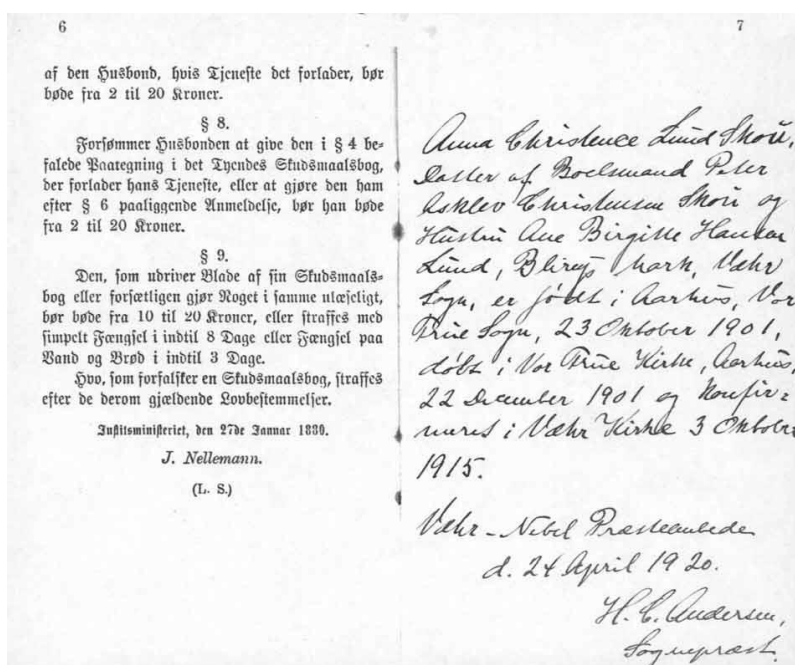 6
af den Husbond, hvis Tjeneste det forlader, bør
bøde fra 2 til 20 Kroner.
§ 8.
Forsømmer Husbonden at give den i § 4 be-
falede Paategning i det Tyendes Skudsmaalsbog,
der forlader hans Tjeneste, eller at gjøre den ham
efter § 6 paaliggende Anmeldelse, bør han bøde
fra 2 til 20 Kroner.
§ 9.
Den, som udriver Blade af sin Skudsmaals-
bog eller forsætligen gjør Noget i samme ulæseligt,
bør bøde fra 10 til 20 Kroner, eller straffes med
simpelt Fængsel i indtil 8 Dage eller Fængsel paa
Vand og Brød i indtil 3 Dage.
Hvo, som forfalsker en Skudsmaalsbog, straffes
efter de derom gjældende Lovbestemmelser.
Justitsministeriet, den 27de Januar 1880.
J. Nellemann.
(L. S.)
7
Anna Christence Lund Skou,
Datter af Boelsmand Peter
Asklev Christensen Skou og
Hustru Ane Birgitte Hansen
Lund, Mark, Væhr
Sogn, er født i Aarhus, Vor
Frue Sogn, 23 Oktober 1901,
døbt i Vor Frue Kirke, Aarhus,
22 December 1901 og Konfir=
meres i Væhr Kirke 3 Oktober
1915.
Væhr - Nebel Præsteembede
d. 24 April 1920.
H. C. Andersen,
Sognepræst.